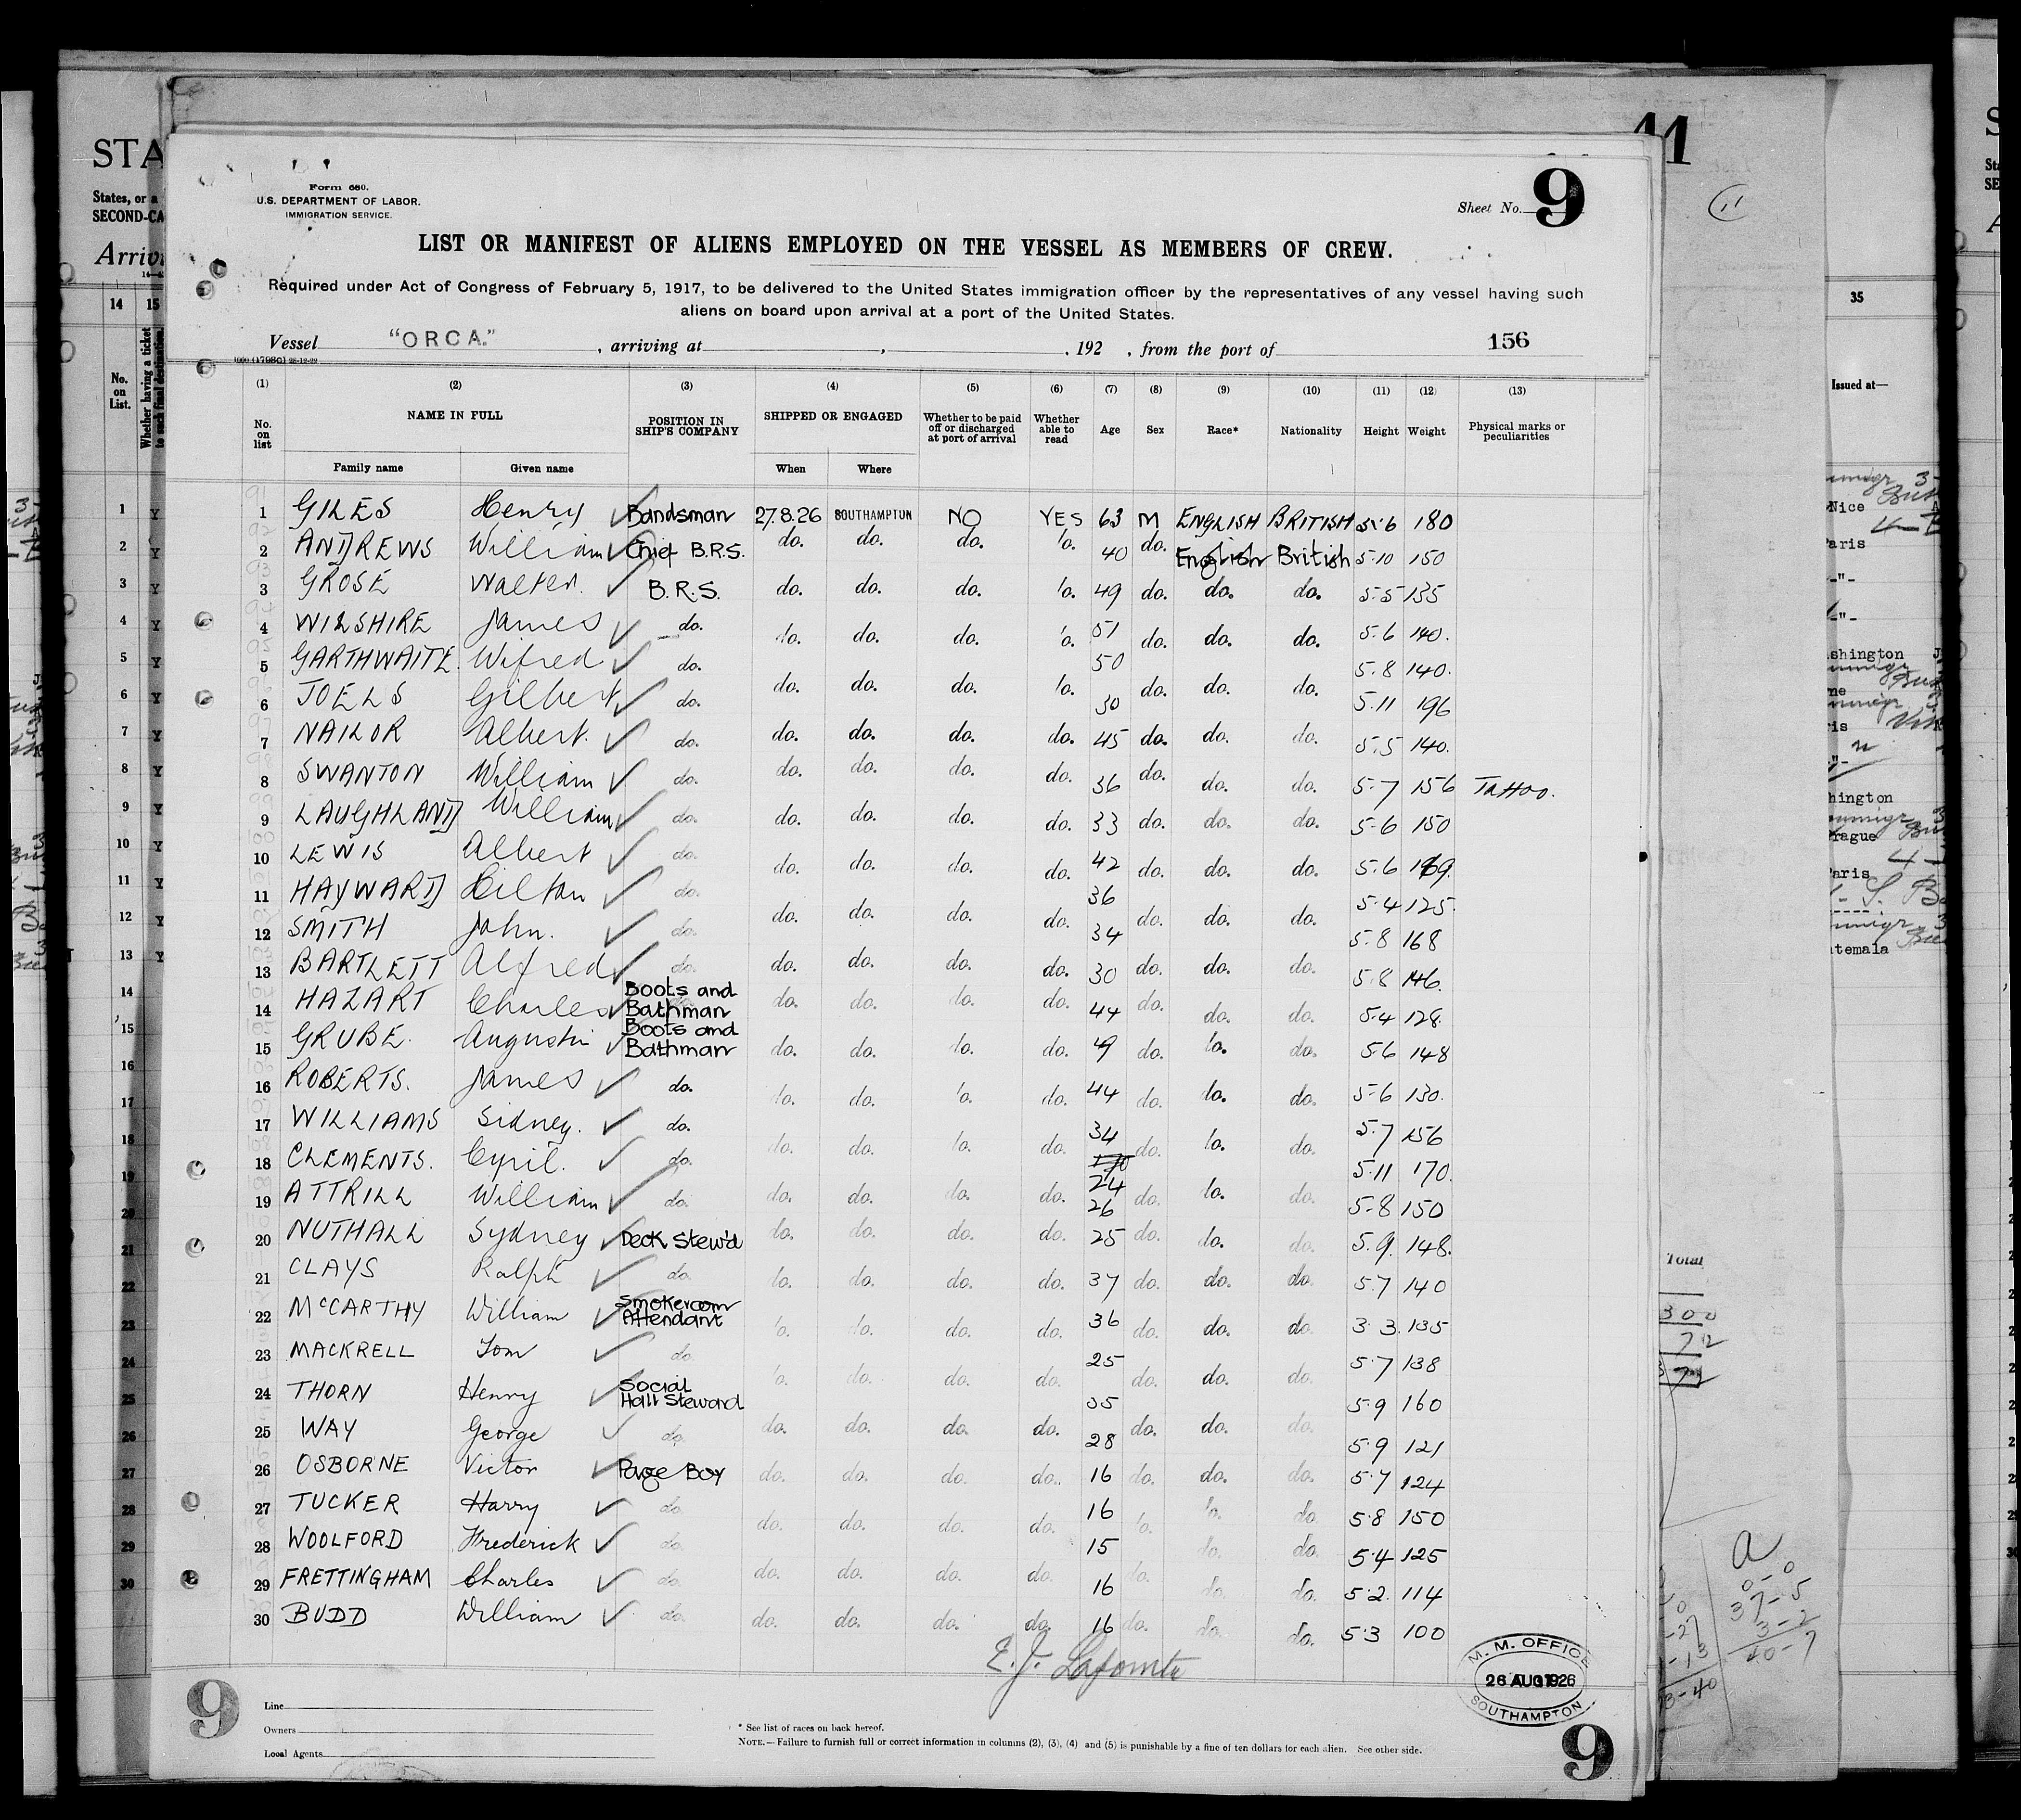 11
Form 680.
U.S. DEPARTMENT OF LABOR.
IMMIGRATION SERVICE.
Sheet No. 9
LIST OR MANIFEST OF ALIENS EMPLOYED ON THE VESSEL AS MEMBERS OF CREW.
Required under Act of Congress of February 5, 1917, to be delivered to the United States immigration officer by the representatives of any vessel having such
aliens on board upon arrival at a port of the United States.
Vessel "ORCA." , arriving at , , 192 , from the port of 156
(1) (2) (3) (4) (5) (6) (7) (8) (9) (10) (11) (12) (13)
No. on list NAME IN FULL POSITION IN SHIP'S COMPANY SHIPPED OR ENGAGED Whether to be paid off or discharged at port of arrival Whether able to read Age Sex Race* Nationality Height Weight Physical marks or peculiarities
Family name Given name When Where
1 GILES Henry Bandsman 27.8.26 SOUTHAMPTON NO YES 63 M ENGLISH BRITISH 5.6 180
2 ANDREWS William Chief B.R.S. do. do. do. do. 40 do. English British 5.10 150
3 GROSE Walter. B.R.S. do. do. do. do. 49 do. do. do. 5.5 135
4 WILSHIRE James do. do. do. do. do. 51 do. do. do. 5.6 140.
5 GARTHWAITE. Wifred do. 50 5.8 140.
6 JOELS Gilbert do. do. do. do. do. 30 do. do. do. 5.11 196
7 NAILOR Albert. do. do. do. do. do. 45 do. do. do. 5.5 140.
8 SWANTON William do. do. do. do. do. 36 do. do. do. 5.7 156 Tattoo.
9 LAUGHLAND William do. do. do. do. do. 33 do. do. do. 5.6 150
10 LEWIS Albert do. do. do. do. do. 42 do. do. do. 5.6
11 HAYWARD Hilton do. 36 5.4 125.
12 SMITH John. do. do. do. do. do. 34 do. do. do. 5.8 168
13 BARTLETT Alfred do. do. do. do. do. 30 do. do. do. 5.8 146.
14 HAZART Charles Boots and Bathman do. do. do. do. 44 do. do. do. 5.4 128.
15 GRUBE. Augustin Boots and Bathman do. do. do. do. do. do. do. 5.6 148
16 ROBERTS. James do. do. do. do. do. 44 do. do. do. 5.6 130.
17 WILLIAMS Sidney. do. 34 5.7 156
18 CLEMENTS. Cyril. do. do. do. do. do. 24 do. do. do. 5.11 170.
19 ATTRILL William do. do. do. do. do. 26 do. do. do. 5.8 150
20 NUTHALL Sydney Deck Stew'd do. do. do. do. 25 do. do. do. 5.9. 148.
21 CLAYS Ralph do. do. do. do. do. 37 do. do. do. 5.7 140
22 McCARTHY William Smokeroom Attendant do. do. do. do. 36 do. do. do. 3 3. 135
23 MACKRELL Tom do. 25 5.7 138
24 THORN Henry Social Hall Steward do. do. do. do. 35 do. do. do. 5.9 160
25 WAY George do. do. do. do. do. 28 do. do. do. 5.9 121
26 OSBORNE Victor Page Boy do. do. do. do. 16 do. do. do. 5.7 124
27 TUCKER Harry do. do. do. do. do. 16 do. do. do. 5.8 150
28 WOOLFORD Frederick do. 15 do. do. 5.4 125
29 FRETTINGHAM Charles do. do. do. do. do. 16 do. do. do. 5.2. 114
30 BUDD William do. do. do. do. do. 16 do. do. do. 5.3 100
E.J. Lafomte
M. M. OFFICE
26 AUG 1926
SOUTHAMPTON
9
Line
Owners
Local Agents
* See list of races on back hereof.
NOTE.—Failure to furnish full or correct information in columns (2), (3), (4) and (5) is punishable by a fine of ten dollars for each alien. See other side.
9
STA
States, or a
SECOND-CA
14 15
No. on List.
Whether having a ticket to such final destination.
35
Issued at—
Nice
Paris
Total